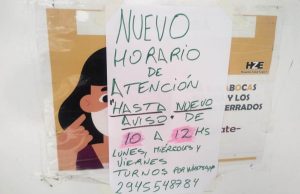 NUEVO
HORARIO
DE
ATENCIÓN
"HASTA NUEVO
AVISO" DE
10 A 12 HS
LUNES, MIERCOLES Y
VIERNES
TURNOS POR WHATSAPP
2945548784
HZE
ABOCAS
Y LOS
ERRADOS
ate-